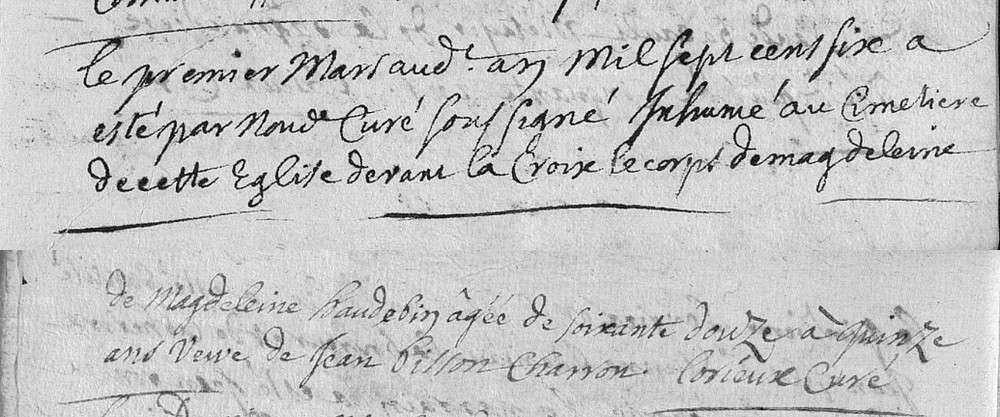 le premier Mars aud.t an Mil sept cent six a
esté par Nous d. Curé soussigné Inhumé au Cimetiere
de cette Eglise devant la Croix le corps de magdeleine
de Magdeleine haudebin âgéé de soixante douze à quinze
ans veuve de Jean bisson Charron. Lorieux Curé